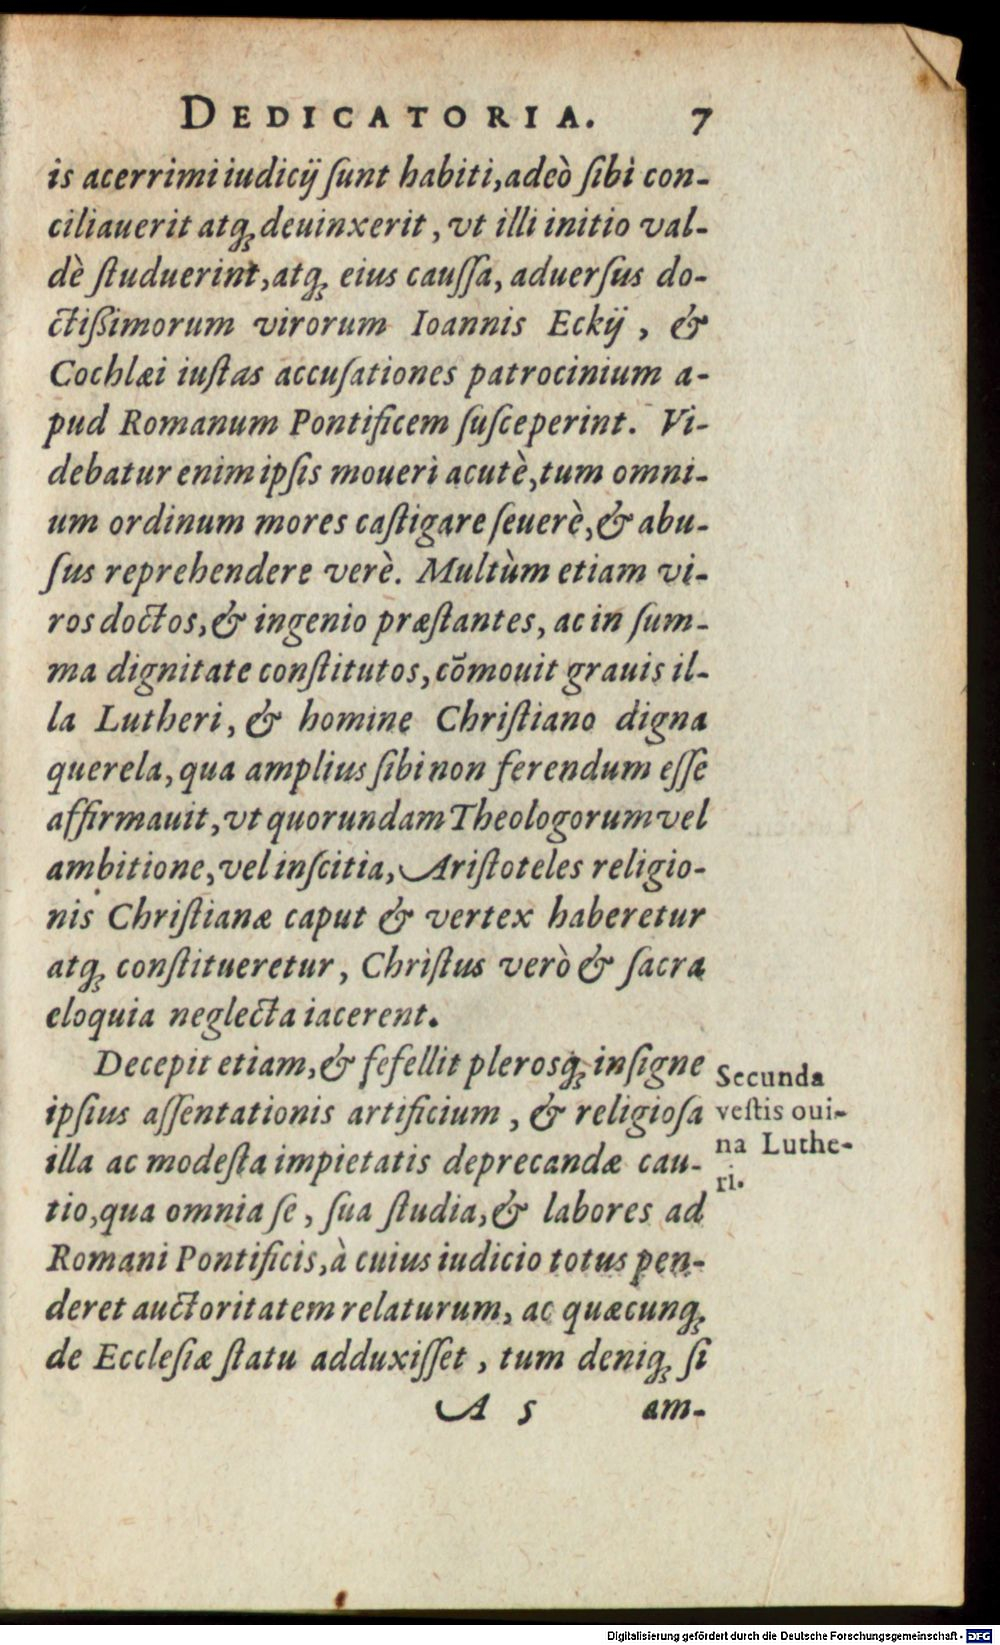 DEDICATORIA. 7
is acerrimi iudicij ſunt habiti, adeò ſibi con-
ciliauerit atq; deuinxerit, vt illi initio val-
dè ſtuduerint, atq; eius cauſſa, aduerſus do-
ctißimorum virorum Ioannis Eckij, &
Cochlæi iuſtas accuſationes patrocinium a-
pud Romanum Pontificem ſuſceperint. Vi-
debatur enim ipſis moueri acutè, tum omni-
um ordinum mores caſtigare ſeuerè, & abu-
ſus reprehendere verè. Multùm etiam vi-
ros doctos, & ingenio præſtantes, ac in ſum-
ma dignitate conſtitutos, cõmouit grauis il-
la Lutheri, & homine Chriſtiano digna
querela, qua amplius ſibi non ferendum eſſe
affirmauit, vt quorundam Theologorum vel
ambitione, vel inſcitia, Ariſtoteles religio-
nis Chriſtianæ caput & vertex haberetur
atq; conſtitueretur, Chriſtus verò & ſacra
eloquia neglecta iacerent.
Decepit etiam, & fefellit plerosq; inſigne
ipſius aſſentationis artificium, & religioſa
illa ac modeſta impietatis deprecandæ cau-
tio, qua omnia ſe, ſua ſtudia, & labores ad
Romani Pontificis, à cuius iudicio totus pen-
deret auctoritatem relaturum, ac quæcunq;
de Eccleſiæ ſtatu adduxiſſet, tum deniq; ſi
A 5 am-
Secunda
veſtis oui-
na Luthe-
ri.
Digitalisierung gefördert durch die Deutsche Forschungsgemeinschaft - DFG